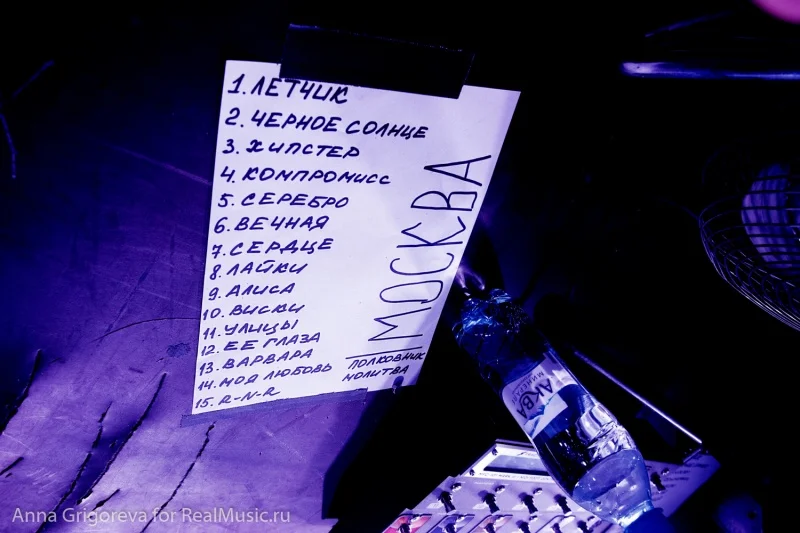 1. ЛЕТЧИК
2. ЧЕРНОЕ СОЛНЦЕ
3. ХИПСТЕР
4. КОМПРОМИСС
5. СЕРЕБРО
6. ВЕЧНАЯ
7. СЕРДЦЕ
8. ЛАЙКИ
9. АЛИСА
10. ВИСКИ
11. УЛИЦЫ
12. ЕЕ ГЛАЗА
13. ВАРВАРА
14. МОЯ ЛЮБОВЬ
15. R-N-R
МОСКВА
ПОЛКОВНИК
МОЛИТВА
АКВА
Anna Grigoreva for RealMusic.ru